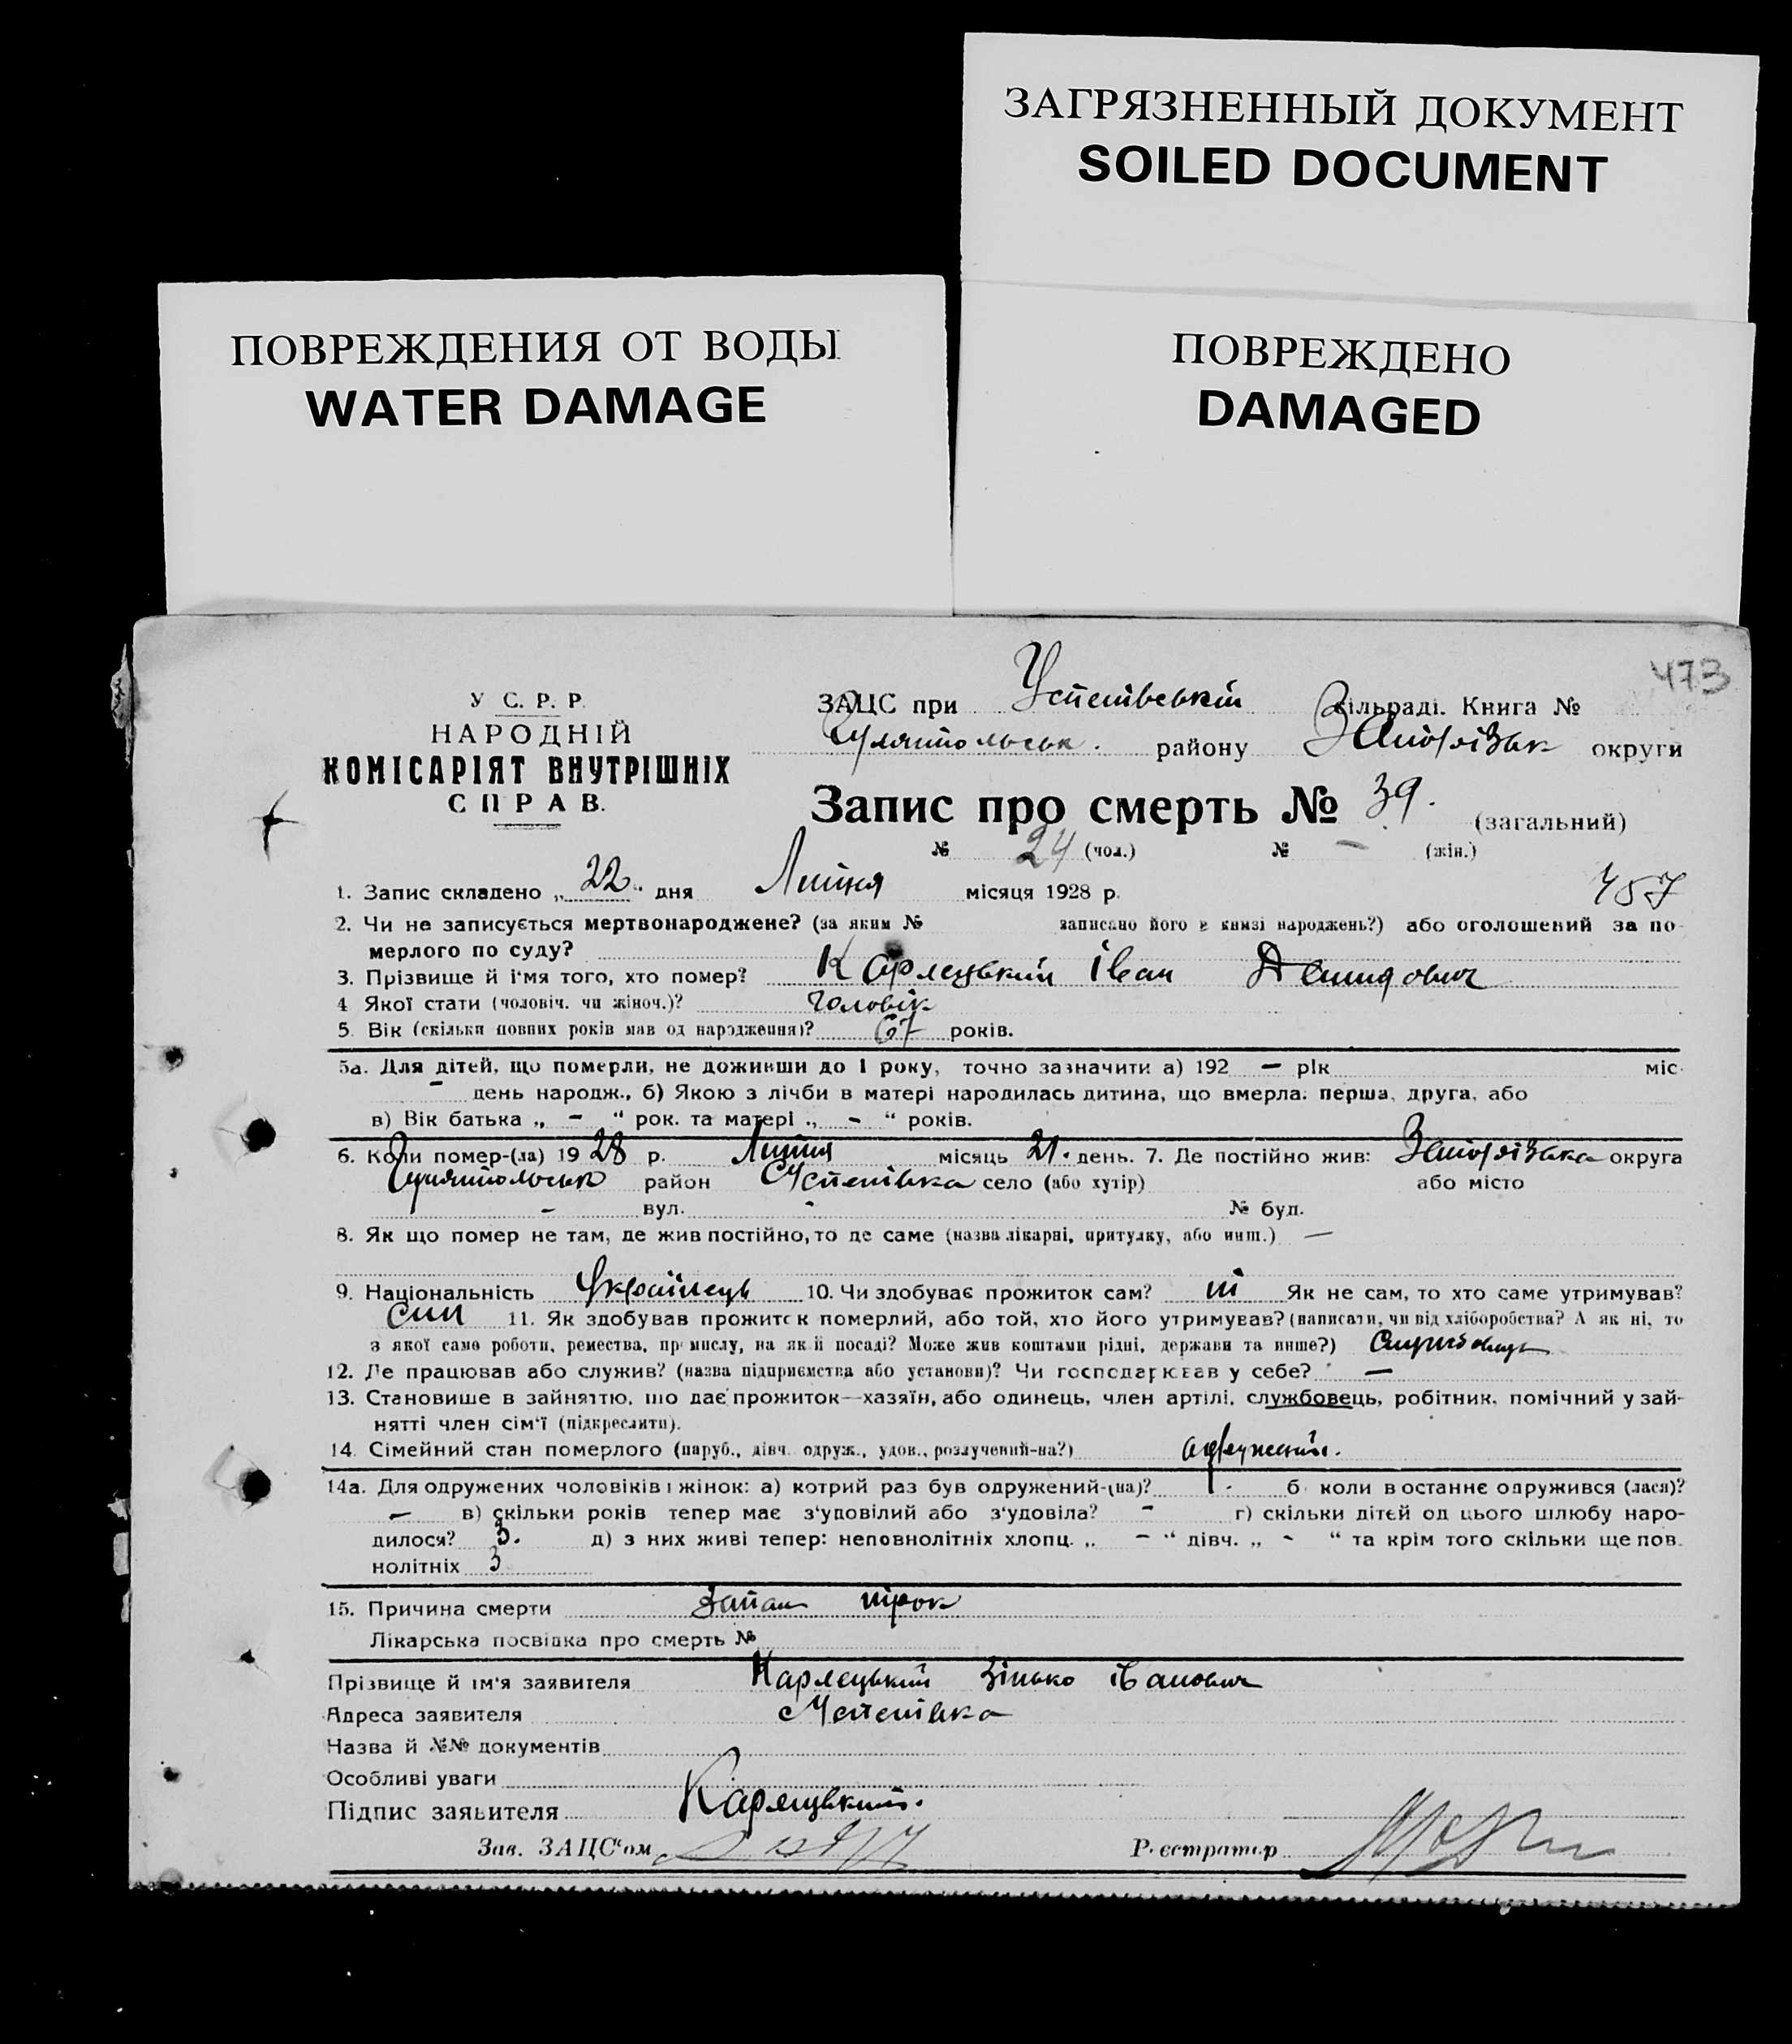 ЗАГРЯЗНЕННЫЙ ДОКУМЕНТ
SOILED DOCUMENT
ПОВРЕЖДЕНИЯ ОТ ВОДЫ
WATER DAMAGE
ПОВРЕЖДЕНО
DAMAGED
473
У С. Р. Р.
НАРОДНІЙ
КОМІСАРІЯТ ВНУТРІШНІХ
СПРАВ.
ЗАЦС при Успенівській сільраді. Книга №
Гуляйпольськ. району Запорізьк округи
Запис про смерть № 39. (загальний)
№ 24 (чол.) № — (жін.)
1. Запис складено „22“ дня Липня місяця 1928 р. 457
2. Чи не записується мертвонароджене? (за яким № записано його в книзі народжень?) або оголошений за по-
мерлого по суду?
3. Прізвище й ім'я того, хто помер? Карлецький Іван Демидович
4 Якої стати (чоловіч. чи жіноч.)? чоловік
5. Вік (скільки повних років мав од народження)? 67 років.
5а. Для дітей, що померли, не доживши до 1 року, точно зазначити а) 192 — рік міс.
— день народж., б) Якою з лічби в матері народилась дитина, що вмерла: перша, друга, або
в) Вік батька „ — “ рок. та матері „ — “ років.
6. Коли помер-(ла) 1928 р. Липня місяць 21. день. 7. Де постійно жив: Запорізька округа
Гуляйпольськ район Успенівка село (або хутір) або місто
— вул. - № буд.
8. Як що помер не там, де жив постійно, то де саме (назва лікарні, притулку, або инш.) —
9. Національність Українець 10. Чи здобував прожиток сам? ні Як не сам, то хто саме утримував?
син 11. Як здобував прожиток померлий, або той, хто його утримував? (написати, чи від хліборобства? А як ні, то
з якої само роботи, ремества, промислу, на якій посаді? Може жив коштами рідні, держави та инше?)
12. Де працював або служив? (назва підприємства або установи)? Чи господарював у себе? —
13. Становище в зайняттю, що дає прожиток—хазяїн, або одинець, член артілі, службовець, робітник, помічний у зай-
нятті член сім'ї (підкреслити).
14. Сімейний стан померлого (паруб., дівч. одруж., удов., розлучений-на?) одружений.
14а. Для одружених чоловіків і жінок: а) котрий раз був одружений-(на)? 1. б коли в останнє одружився (лася)?
— в) скільки років тепер має з'удовілий або з'удовіла? - г) скільки дітей од цього шлюбу наро-
дилося? 3. д) з них живі тепер: неповнолітніх хлопц. „ — “ дівч. „ - “ та крім того скільки ще пов.
нолітніх 3
15. Причина смерти
Лікарська посвідка про смерть №
Прізвище й ім'я заявителя Карлецький Зінько Іванович
Адреса заявителя Успенівка
Назва й №№ документів
Особливі уваги
Підпис заявителя Карлецький.
Зав. ЗАЦС'ом Реєстратор